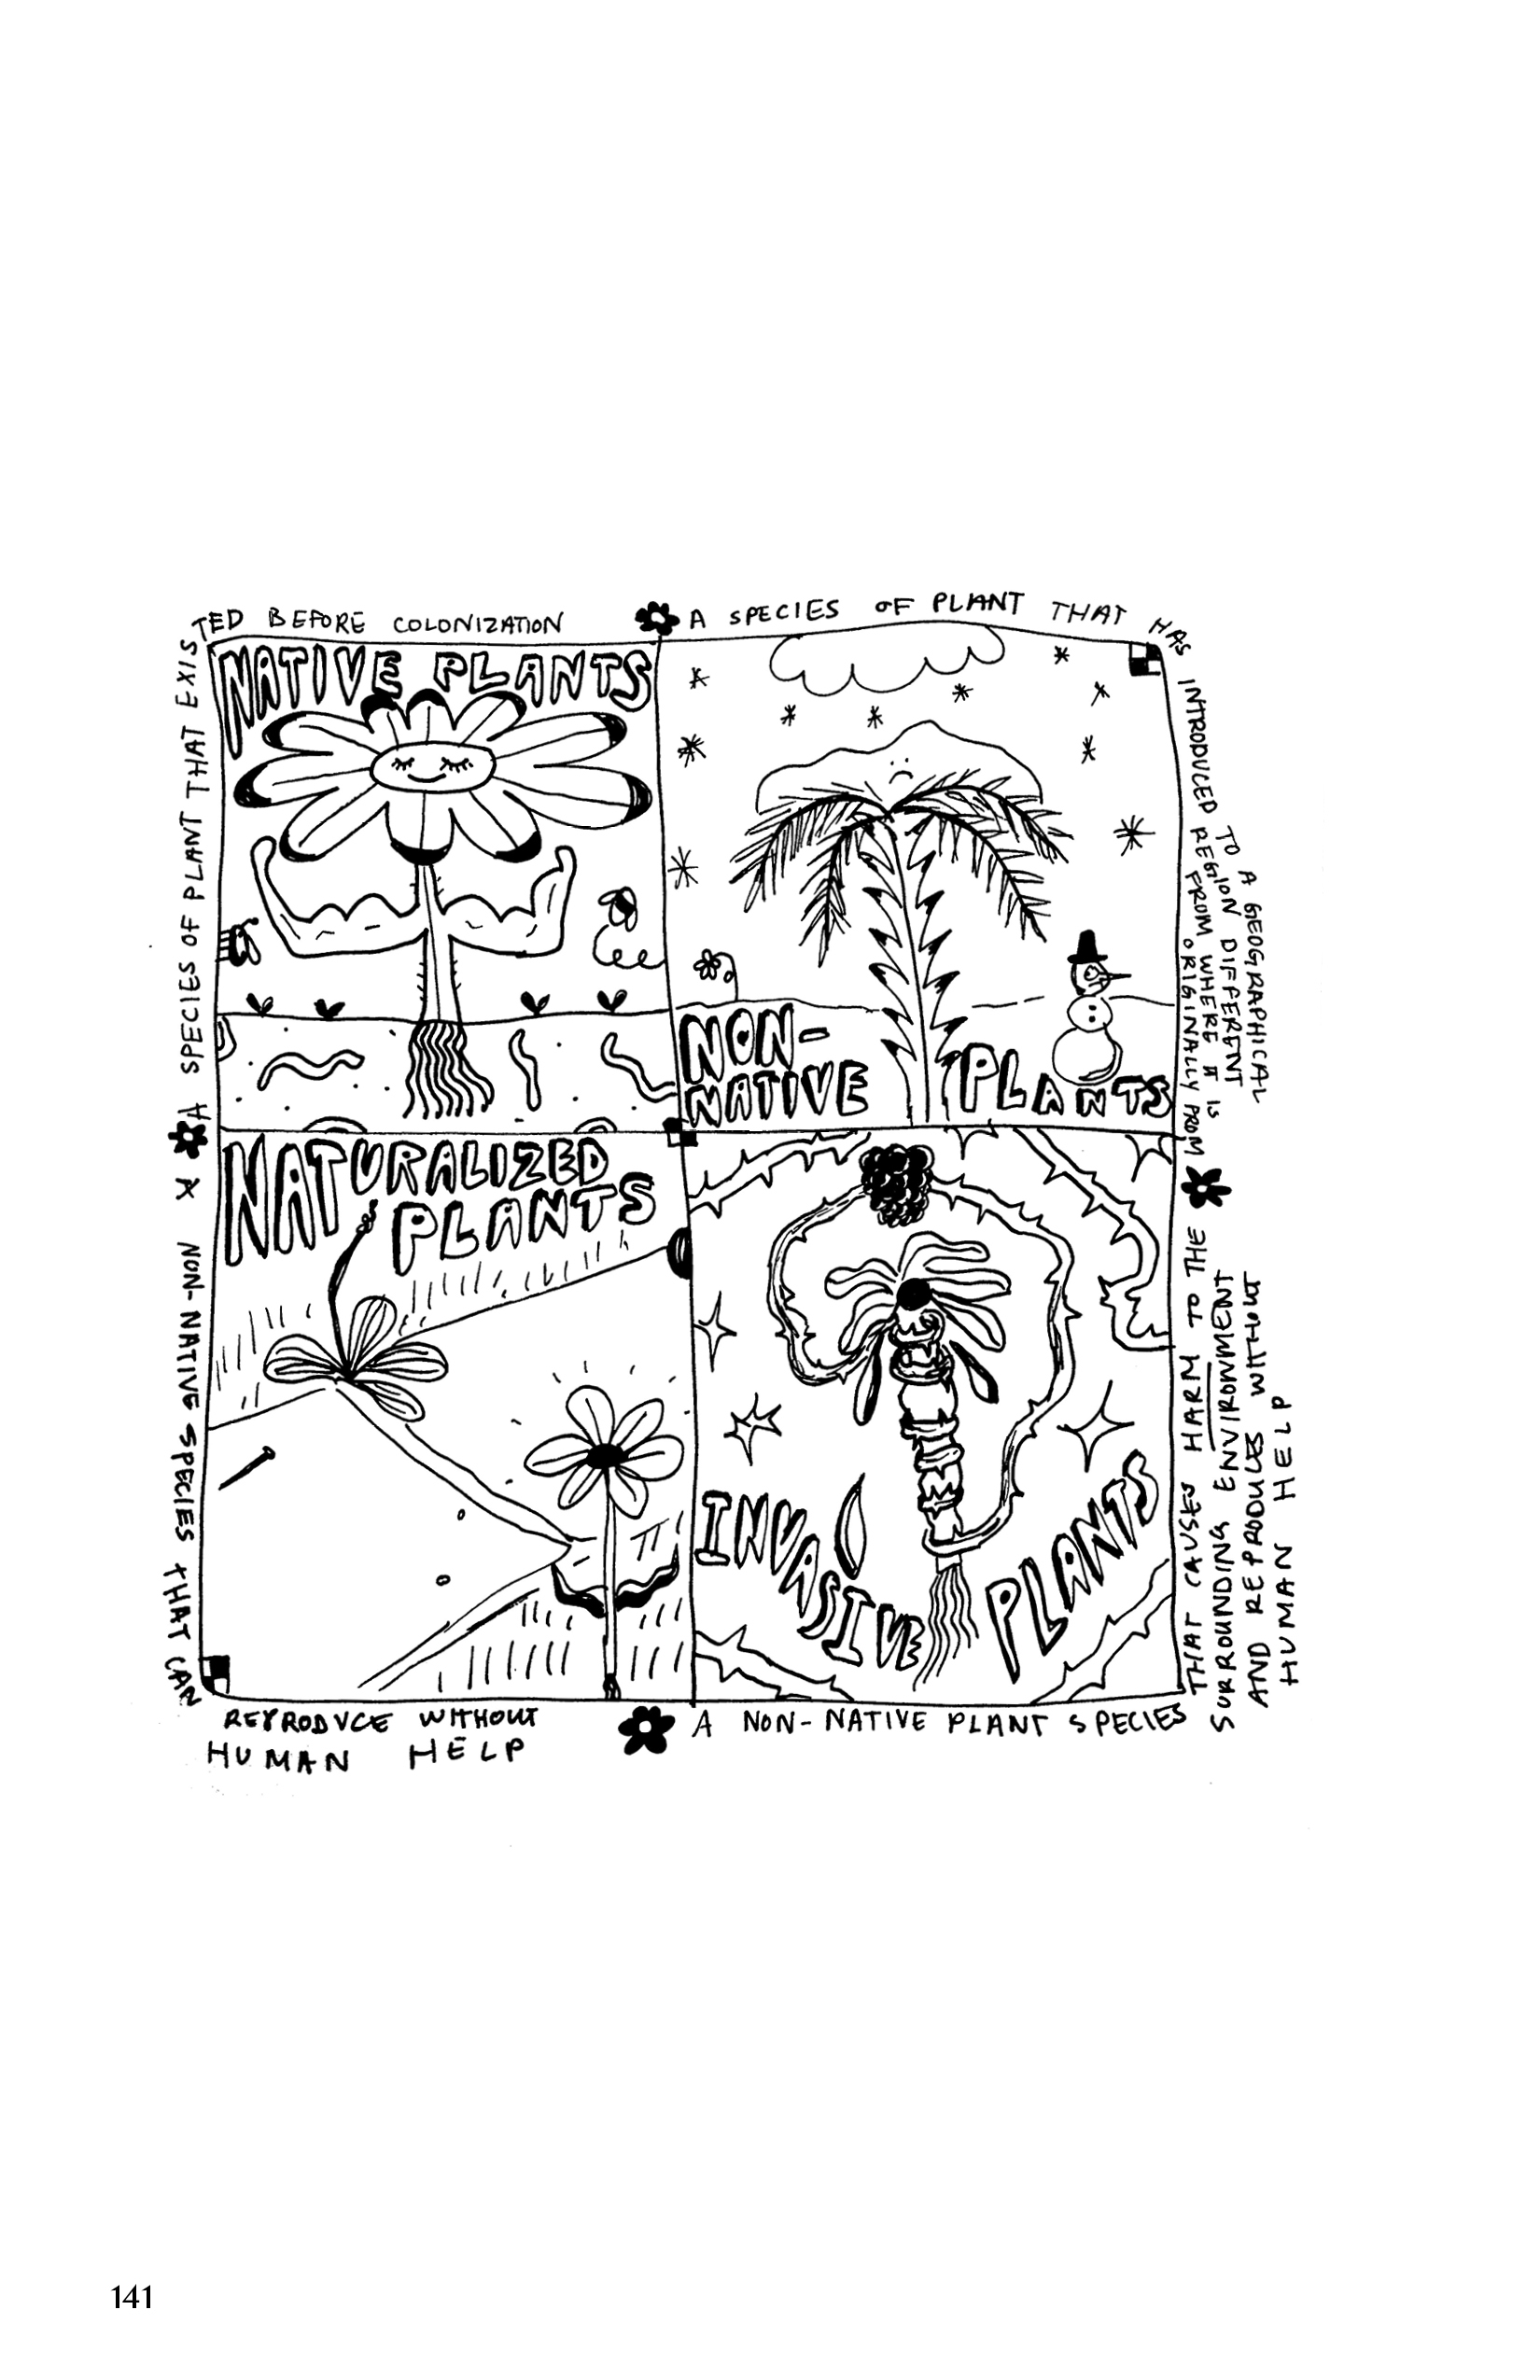 A SPECIES OF PLANT THAT EXIS
TED BEFORE COLONIZATION
NATIVE PLANTS
A SPECIES OF PLANT THAT HAS
INTRODUCED TO A GEOGRAPHICAL
REGION DIFFERENT
FROM WHERE IT IS
ORIGINALLY FROM
NON-
NATIVE PLANTS
NATURALIZED
PLANTS
A NON-NATIVE SPECIES THAT CAN
REPRODUCE WITHOUT
HUMAN HELP
INVASIVE PLANTS
A NON-NATIVE PLANT SPECIES
THAT CAUSES HARM TO THE
SURROUNDING ENVIRONMENT
AND REPRODUCES WITHOUT
HUMAN HELP
141